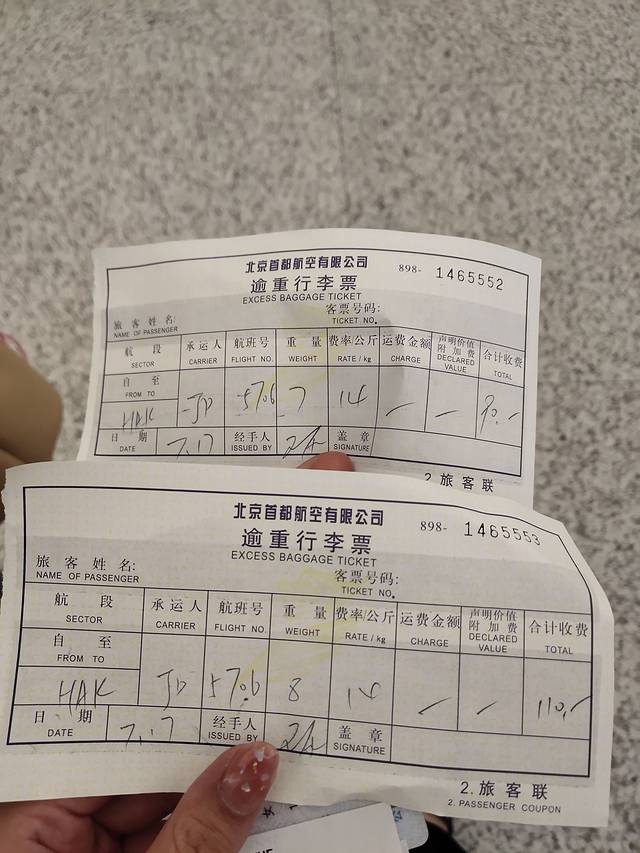 北京首都航空有限公司 898- 1465552
逾重行李票
EXCESS BAGGAGE TICKET
旅客姓名: 客票号码:
NAME OF PASSENGER TICKET NO.
航段 承运人 航班号 重量 费率公斤 运费金额 声明价值附加费 合计收费
SECTOR CARRIER FLIGHT NO. WEIGHT RATE / kg CHARGE DECLARED VALUE TOTAL
自 至
FROM TO
HAK JD 5706 7 14 — — 90.-
日期 7.17 经手人 盖章
DATE ISSUED BY SIGNATURE
2. 旅客联
北京首都航空有限公司 898- 1465553
逾重行李票
EXCESS BAGGAGE TICKET
旅客姓名: 客票号码:
NAME OF PASSENGER TICKET NO.
航段 承运人 航班号 重量 费率公斤 运费金额 声明价值附加费 合计收费
SECTOR CARRIER FLIGHT NO. WEIGHT RATE / kg CHARGE DECLARED VALUE TOTAL
自 至
FROM TO
HAK JD 5706 8 14 — — 110.-
日期 7.17 经手人 盖章
DATE ISSUED BY SIGNATURE
2. 旅客联
2. PASSENGER COUPON